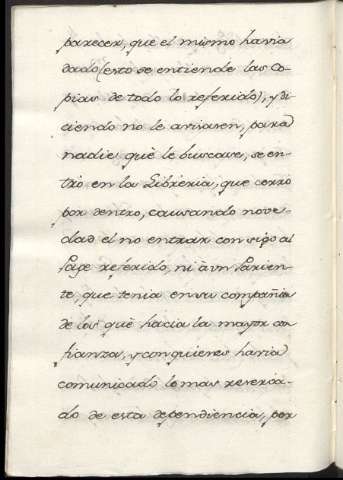 parecer, què el mismo havia
dado (esto se entiende las co-
pias de todo lo referido), y di-
ciendo no le avisasen, para
nadie què le buscase, se en-
trò en la Libreria, que cerrò
por dentro, causando nove-
dad el no entrar consigo al
Page referido, ni à vn Parien-
te, que tenia en su compañia
de los què hacia la mayor con
fianza, y con quienes havia
comunicado lo mas reserva-
do de esta dependiencia, por